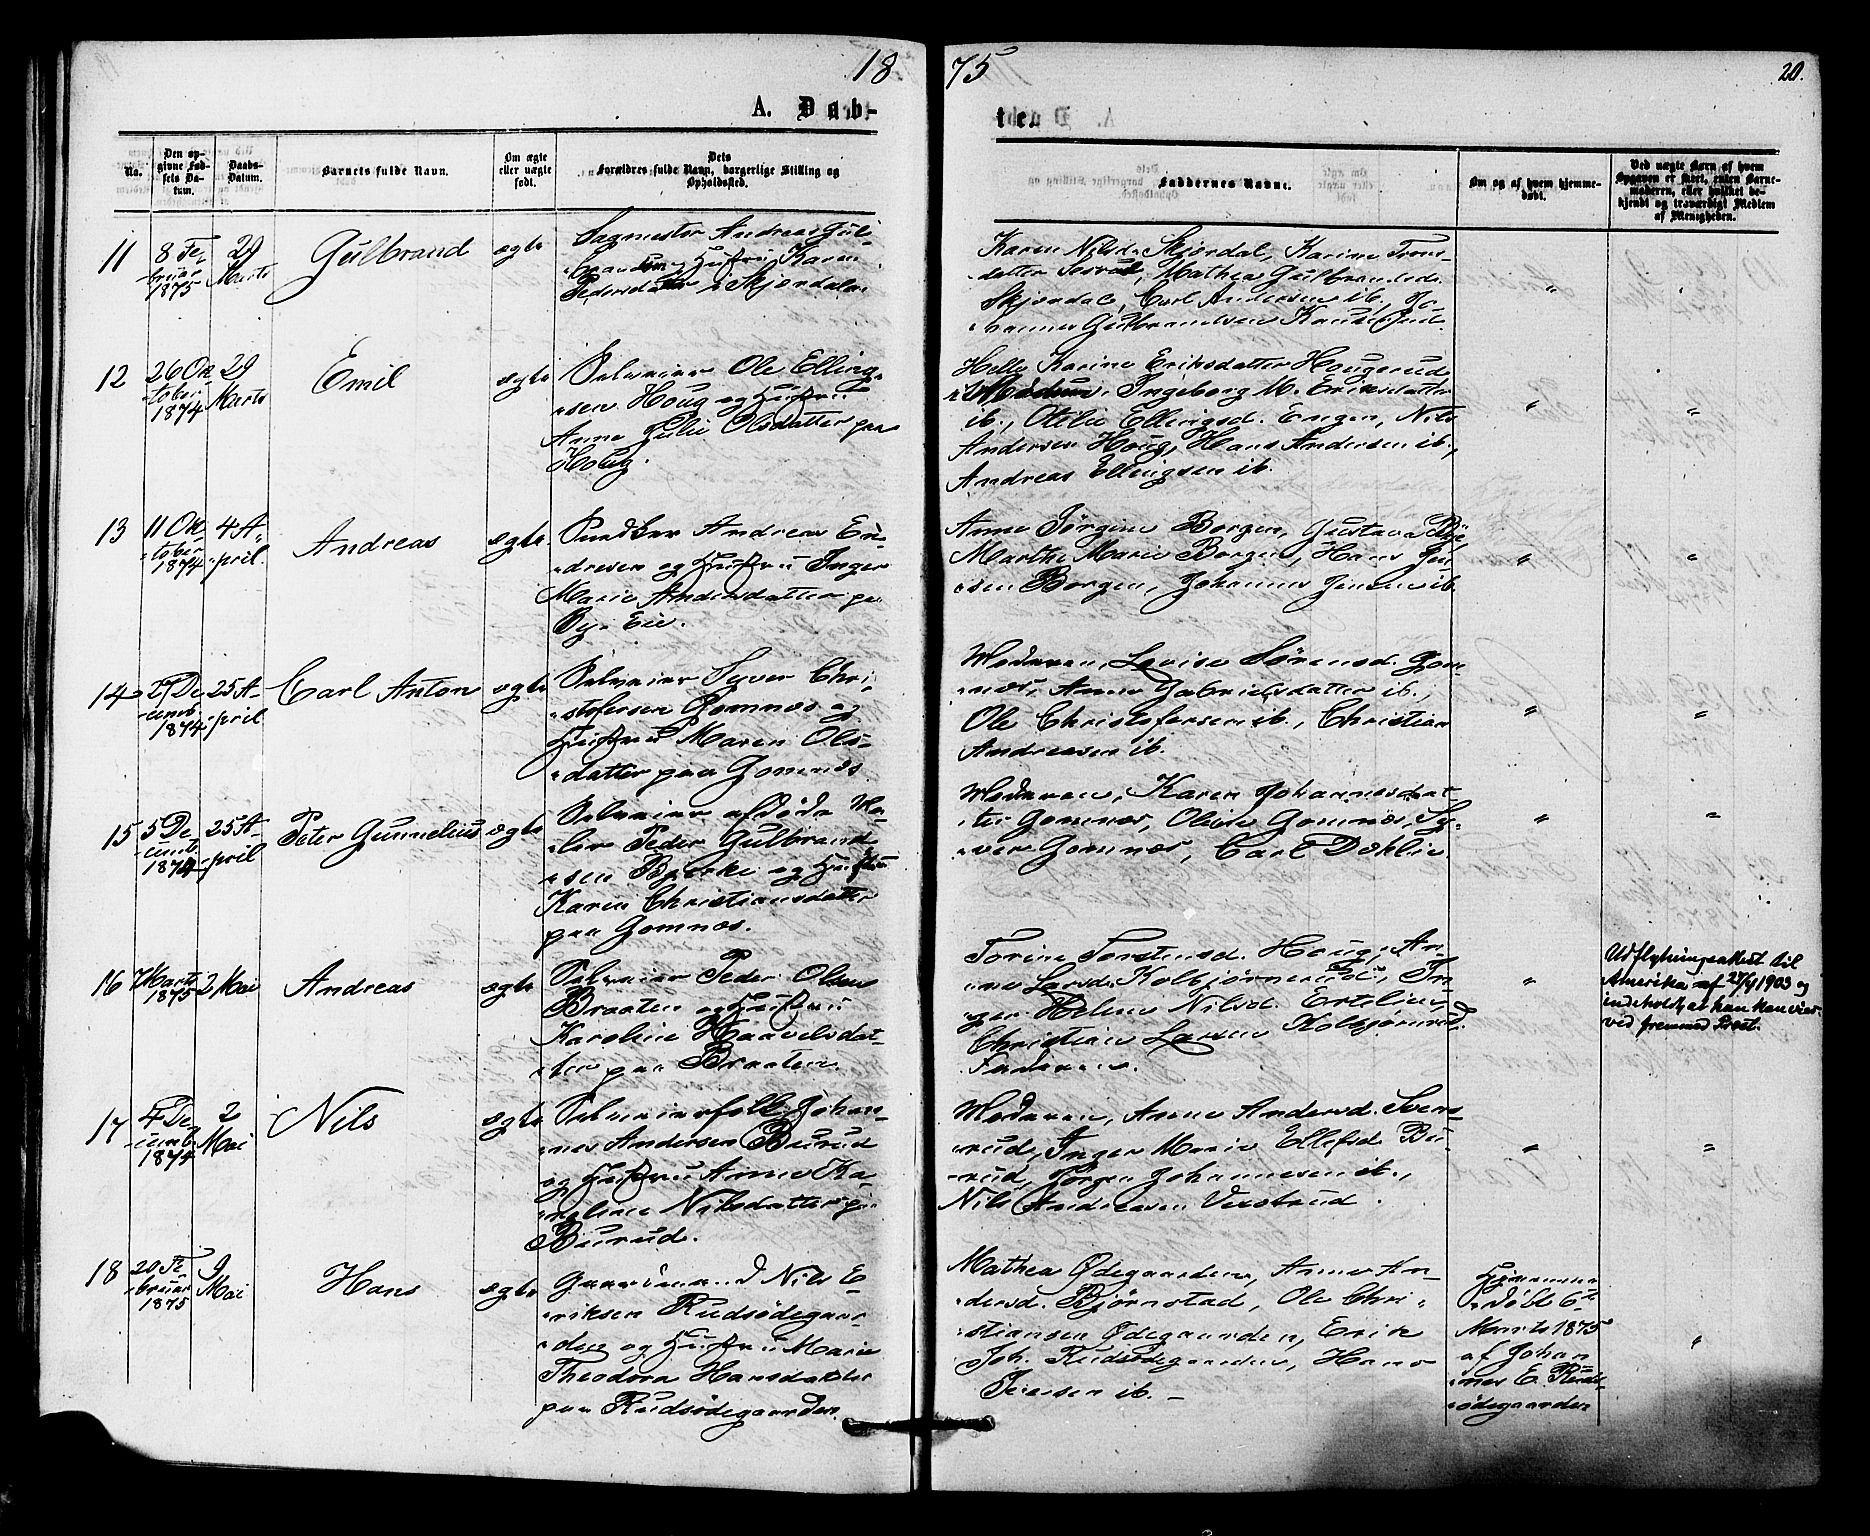 18
75
20.
A. Dåb-
ten
No.
Den op-
givne Fød-
sels Da-
tum.
Daabs-
Datum.
Barnets fulde Navn.
Om ægte
eller uægte
født.
Dets
Forældres fulde Navn, borgerlige Stilling og
Opholdssted.
Faddernes Navne.
Om og af hvem hjemme-
døbt.
Ved uægte Børn af hvem
Opgaven er skeet, enten Barne-
moderen, eller hvilket be-
kjendt og troværdigt Medlem
af Menigheden.
11
8 Fe-
bruar
1875
29
Marts
Gulbrand
ægte
Sagmester Andreas Gul-
brandsen og Hustru Karen
Pedersdatter i Skjørdalen
Karen Nilsd. Skjørdal, Karine Trons-
datter, Mathea Gulbrandsd.
Skjørdal, Carl Andersen ib., Jo-
hannes Gulbrandsen
"
12
26 Ok-
tober
1874
29
Marts
Emil
ægte
Selveier Ole Elling-
sen Houg og Hustru
Anne Julie Olsdatter paa
Houg.
Helle Karine Eriksdatter Hougerud
i Modum, Ingeborg M. Eriksdatter
ib., Otilie Ellingsd. Engen, Nils
Andersen Houg, Hans Andersen ib.,
Andreas Ellingsen ib.
"
"
13
11 Ok-
tober
1874
4 A-
pril.
Andreas
ægte
Andreas En-
dresen og Hustru Inger
Marie Andersdatter pa
By-Eie.
Anne Jørgine Borgen, Gustava Bye,
Marthe Marie Borgen, Hans Jen-
sen Borgen, Johannes Jensen ib.
"
"
14
27 De-
cemb.
1874
25 A-
pril
Carl Anton
ægte
Selveier Syver Chri-
stofersen Gomnæs og
Hustru Maren Ols-
datter paa Gomnæs
Moderen, Lovise Sørensd. Gom-
næs, Anne Gabrielsdatter ib.,
Ole Christofersen ib., Christian
Andreasen ib.
"
"
15
5 De-
cemb.
1874
25 A-
pril
Peter Gunnelius
ægte
Selveier afdøde Ma-
ler Peder Gulbrand-
sen Bjerke og Hustru
Karen Christiansdatter
paa Gomnæs.
Moderen, Karen Johannesdat-
ter Gomnæs, Gomnæs, Sy-
ver Gomnæs, Carl Dæhlie.
"
"
16
7 Marts
1875
2 Mai
Andreas
ægte
Selveier Peder Olsen
Braaten og Hustru
Karoline Haavelsdat-
ter paa Braaten
Torine Torstensd. Houg, An-
ne Larsd. Kolbjørnsrud, In-
ger Helene Nilsd.
Christian Larsen Kolbjørnsrud.
Faderen.
"
Udflytningsattest til
Amerika af 27/4 1903 og
indeholdt, at han kan vies
ved fremmed Præst.
17
4 De-
cemb.
1874
2
Mai
Nils
ægte
Selveierfolk Johan-
nes Andersen Burud
og Hustru Anne Ka-
roline Nilsdatter pa
Burud.
Moderen, Anne Andersd. Svens-
rud, Inger Marie Ellefsd. Bu-
rud, Jørgen Johannesen ib.,
Nils Andersen
"
"
18
20 Fe-
bruar
1875
9
Mai
Hans
ægte
Gaardmand Nils E-
riksen Rudsødegaar-
den og Hustru Marie
Theodora Hansdatter
paa Rudsødegaarden.
Mathea Ødegaarden, Anne An-
dersd. Bjørnstad, Ole Chri-
stiansen Ødegaarden, Erik
Joh. Rudsødegaarden, Hans
Iversen ib. -
Hjemme-
døbt 6te
Marts 1875
af Johan-
nes E. Ruds-
ødegaarden
"